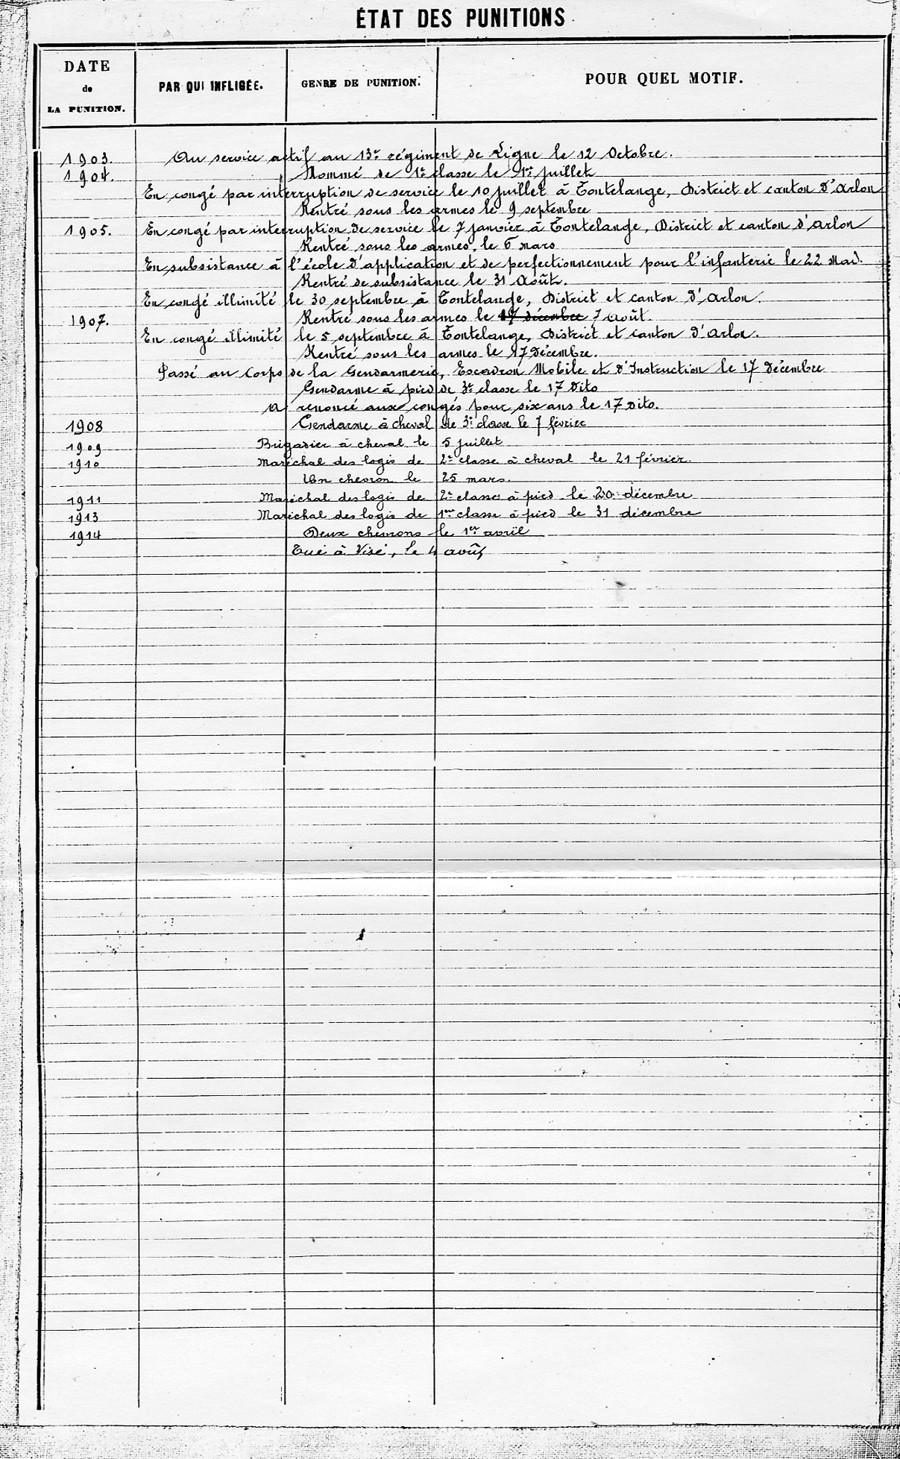 ÉTAT DES PUNITIONS
DATE
de
LA PUNITION.
PAR QUI INFLIGÉE.
GENRE DE PUNITION.
POUR QUEL MOTIF.
1903. Au service actif au 13e régiment de Ligne le 12 Octobre.
1904. Nommé de 1e classe le 1er juillet
En congé par interruption de service le 10 juillet à Tontelange, District et canton d'Arlon
Rentré sous les armes le 9 septembre
1905. En congé par interruption de service le 7 janvier à Tontelange, District et canton d'Arlon
Rentré sous les armes, le 6 mars
En subsistance à l'école d'application et de perfectionnement pour l'infanterie le 22 Mai.
Rentré de subsistance le 31 Août.
En congé illimité le 30 septembre à Tontelange, District et canton d'Arlon.
1907. Rentré sous les armes le 17 décembre 7 août.
En congé illimité le 5 septembre à Tontelange, District et canton d'Arlon.
Rentré sous les armes le 17 Décembre.
Passé au Corps de la Gendarmerie, Escadron Mobile et d'Instruction le 17 décembre
Gendarme à pied de 3e classe le 17 Dito
A renoncé aux congés pour six ans le 17 Dito.
1908 Gendarme à cheval de 3e classe le 7 février
1909 Brigadier à cheval le 5 juillet
1910 Maréchal des logis de 2e classe à cheval le 21 février.
Un chevron le 25 mars.
1911 Maréchal des logis de 2e classe à pied le 20 décembre
1913 Maréchal des logis de 1re classe à pied le 31 décembre
1914 Deux chevrons le 1er avril
Tué à Visé, le 4 août